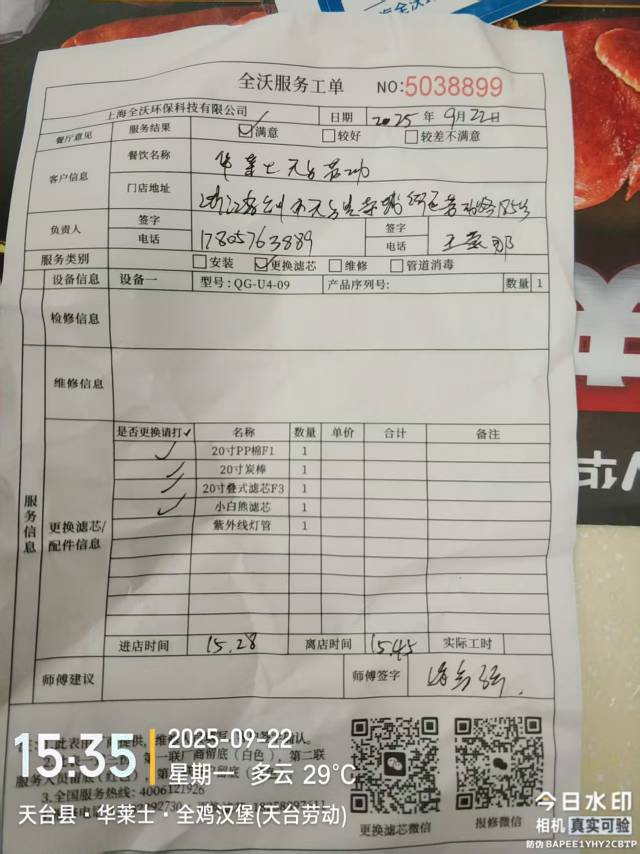 全沃服务工单 NO:5038899
上海全沃环保科技有限公司 日期 2025 年 9月 22日
餐厅意见 服务结果 ☑满意 □较好 □较差不满意
客户信息 餐饮名称 华莱士天台劳动
门店地址
负责人 签字 签字
电话 17805763889 电话
服务类别 □安装 ☑更换滤芯 □维修 □管道消毒
设备信息 设备一 型号: QG-U4-09 产品序列号: 数量 1
检修信息
维修信息
服务信息
更换滤芯/配件信息
是否更换请打✓ 名称 数量 单价 合计 备注
✓ 20寸PP棉F1 1
✓ 20寸炭棒 1
✓ 20寸叠式滤芯F3 1
✓ 小白熊滤芯 1
紫外线灯管 1
进店时间 15.28 离店时间 15.45 实际工时
师傅建议 师傅签字
3.全国服务热线: 4006121926
更换滤芯微信 报修微信
15:35 2025-09-22
星期一 多云 29°C
天台县·华莱士·全鸡汉堡(天台劳动)
今日水印
相机 真实可验
防伪 BAPEE1YHY2CBTP